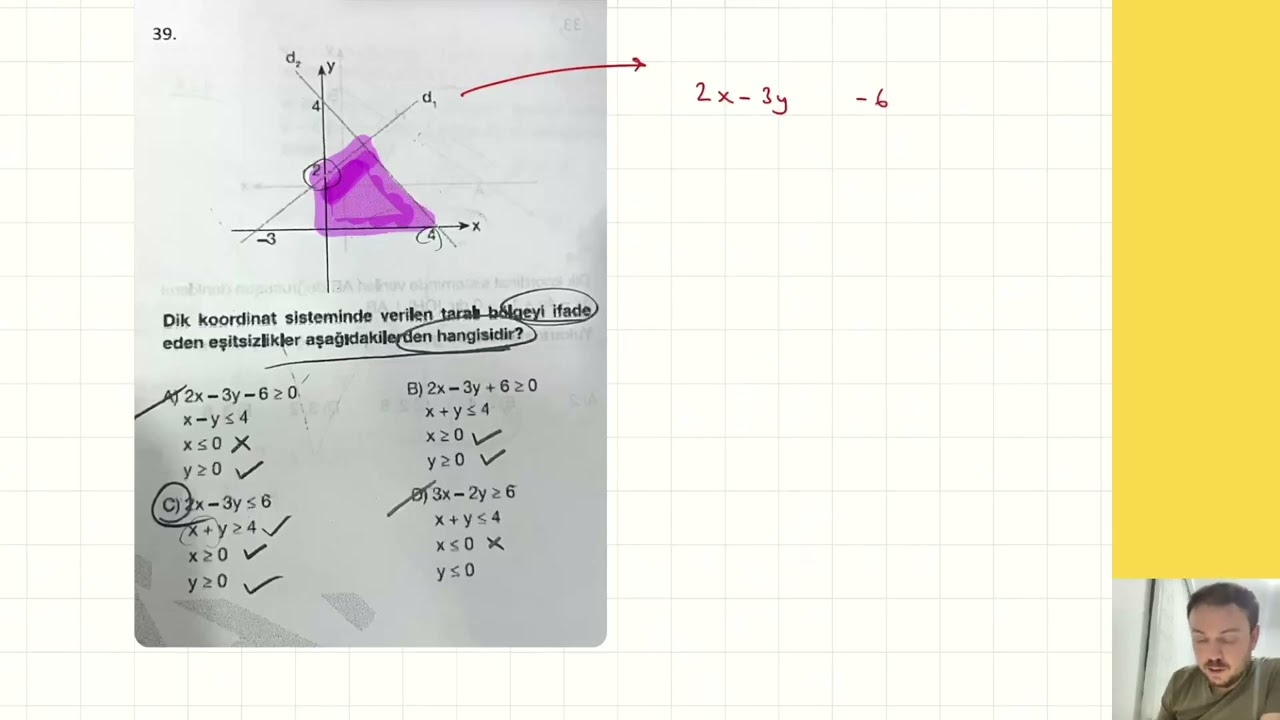 39.
d₂
y
4
d₁
2
-3
4
x
2x - 3y -6
Dik koordinat sisteminde verilen taralı bölgeyi ifade
eden eşitsizlikler aşağıdakilerden hangisidir?
A) 2x – 3y – 6 ≥ 0
x – y ≤ 4
x ≤ 0
y ≥ 0
B) 2x – 3y + 6 ≥ 0
x + y ≤ 4
x ≥ 0
y ≥ 0
C) 2x – 3y ≤ 6
x + y ≥ 4
x ≥ 0
y ≥ 0
D) 3x – 2y ≥ 6
x + y ≤ 4
x ≤ 0
y ≤ 0